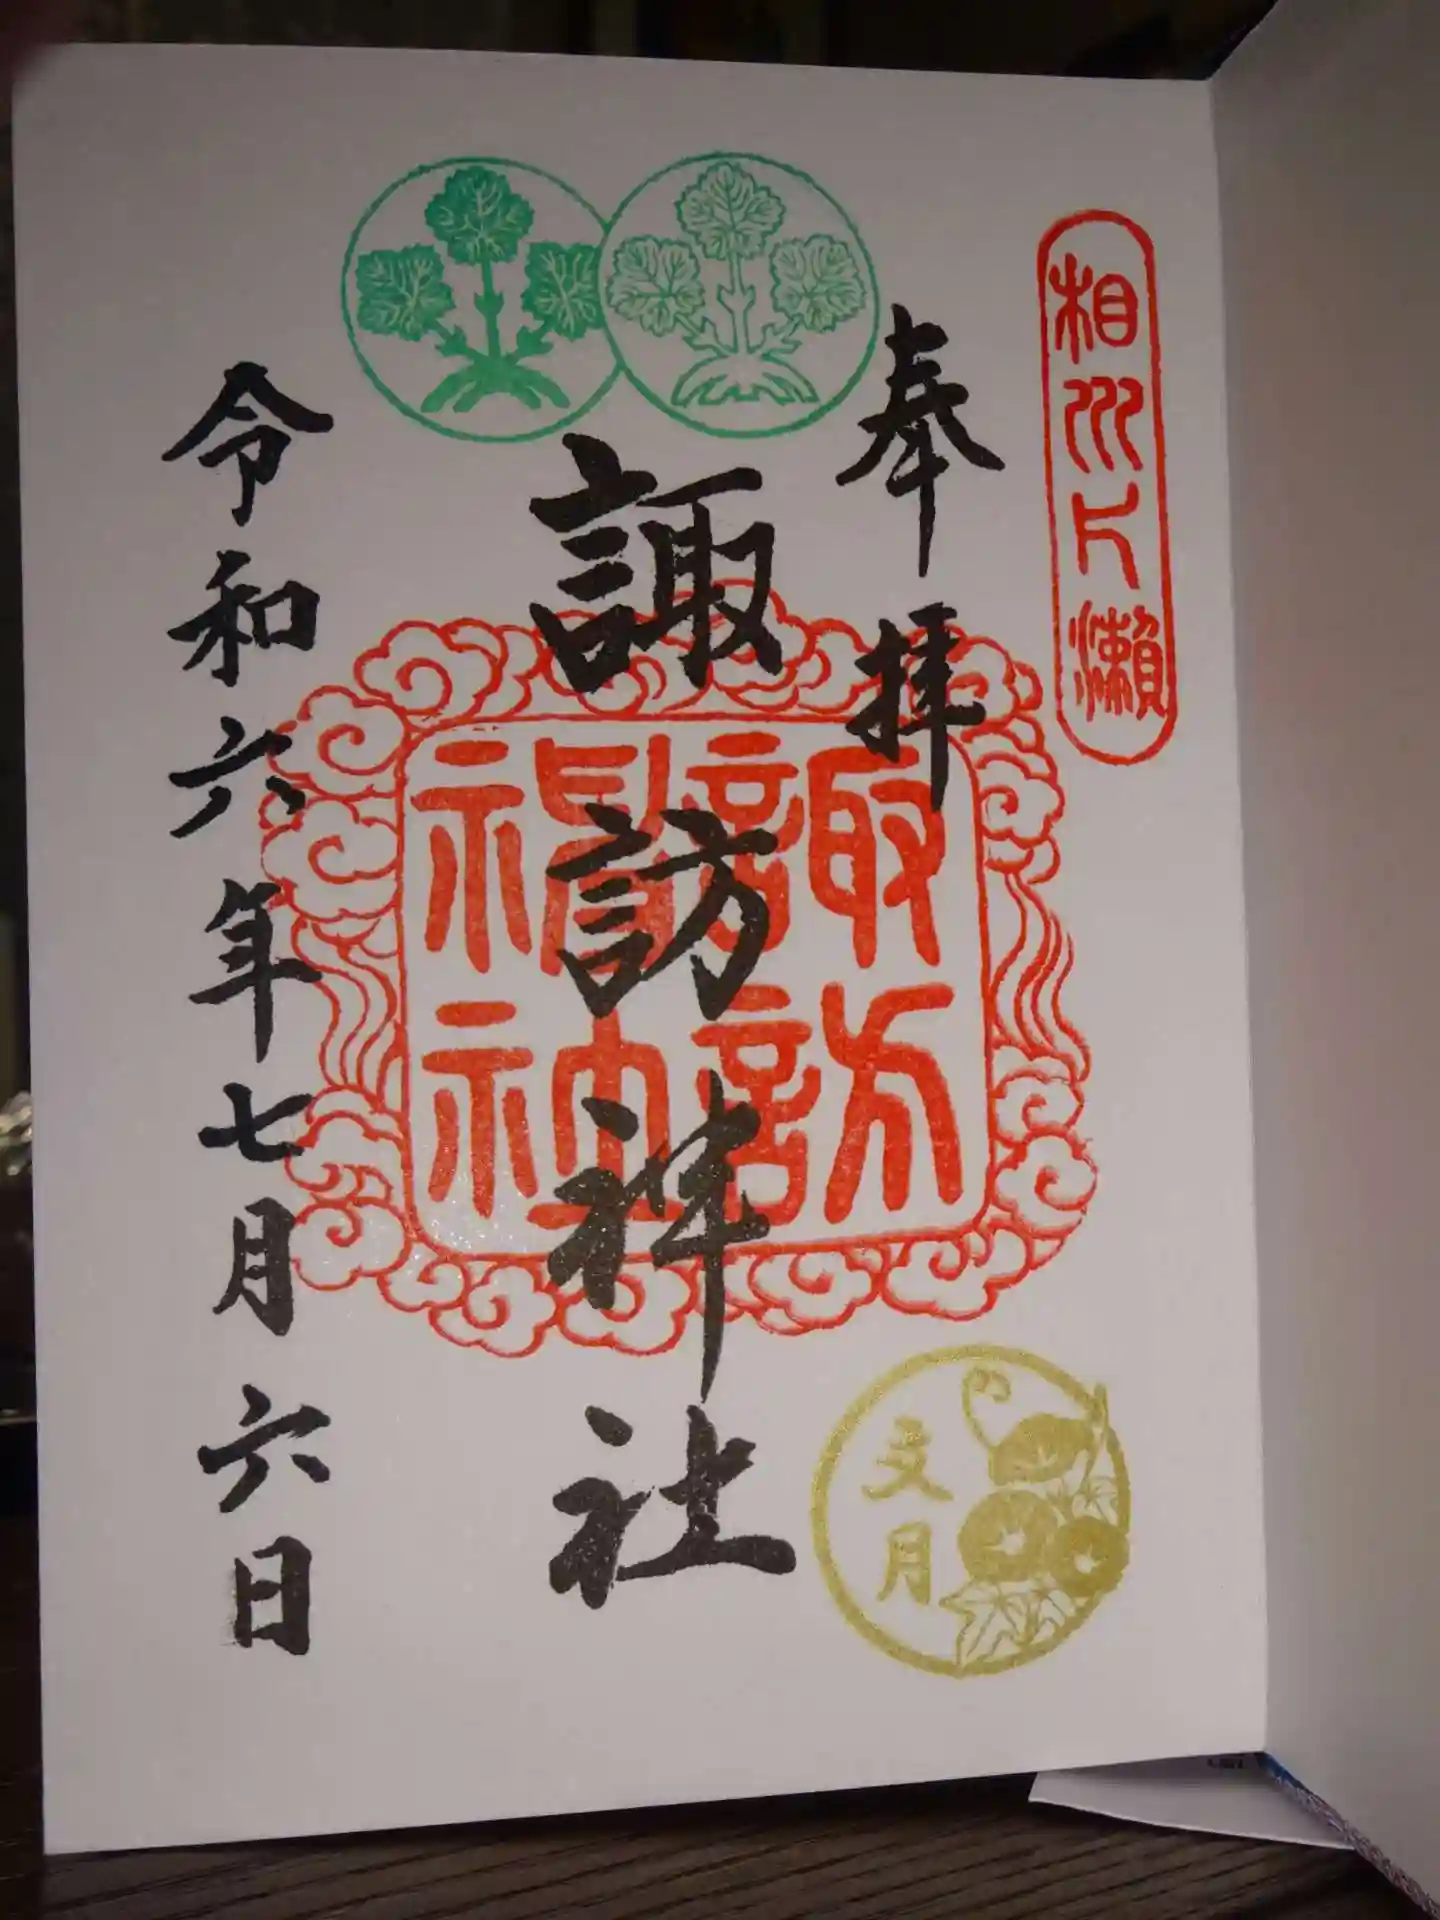 相州片瀬
奉拝
諏訪神社
諏訪神社
令和六年七月六日
文月